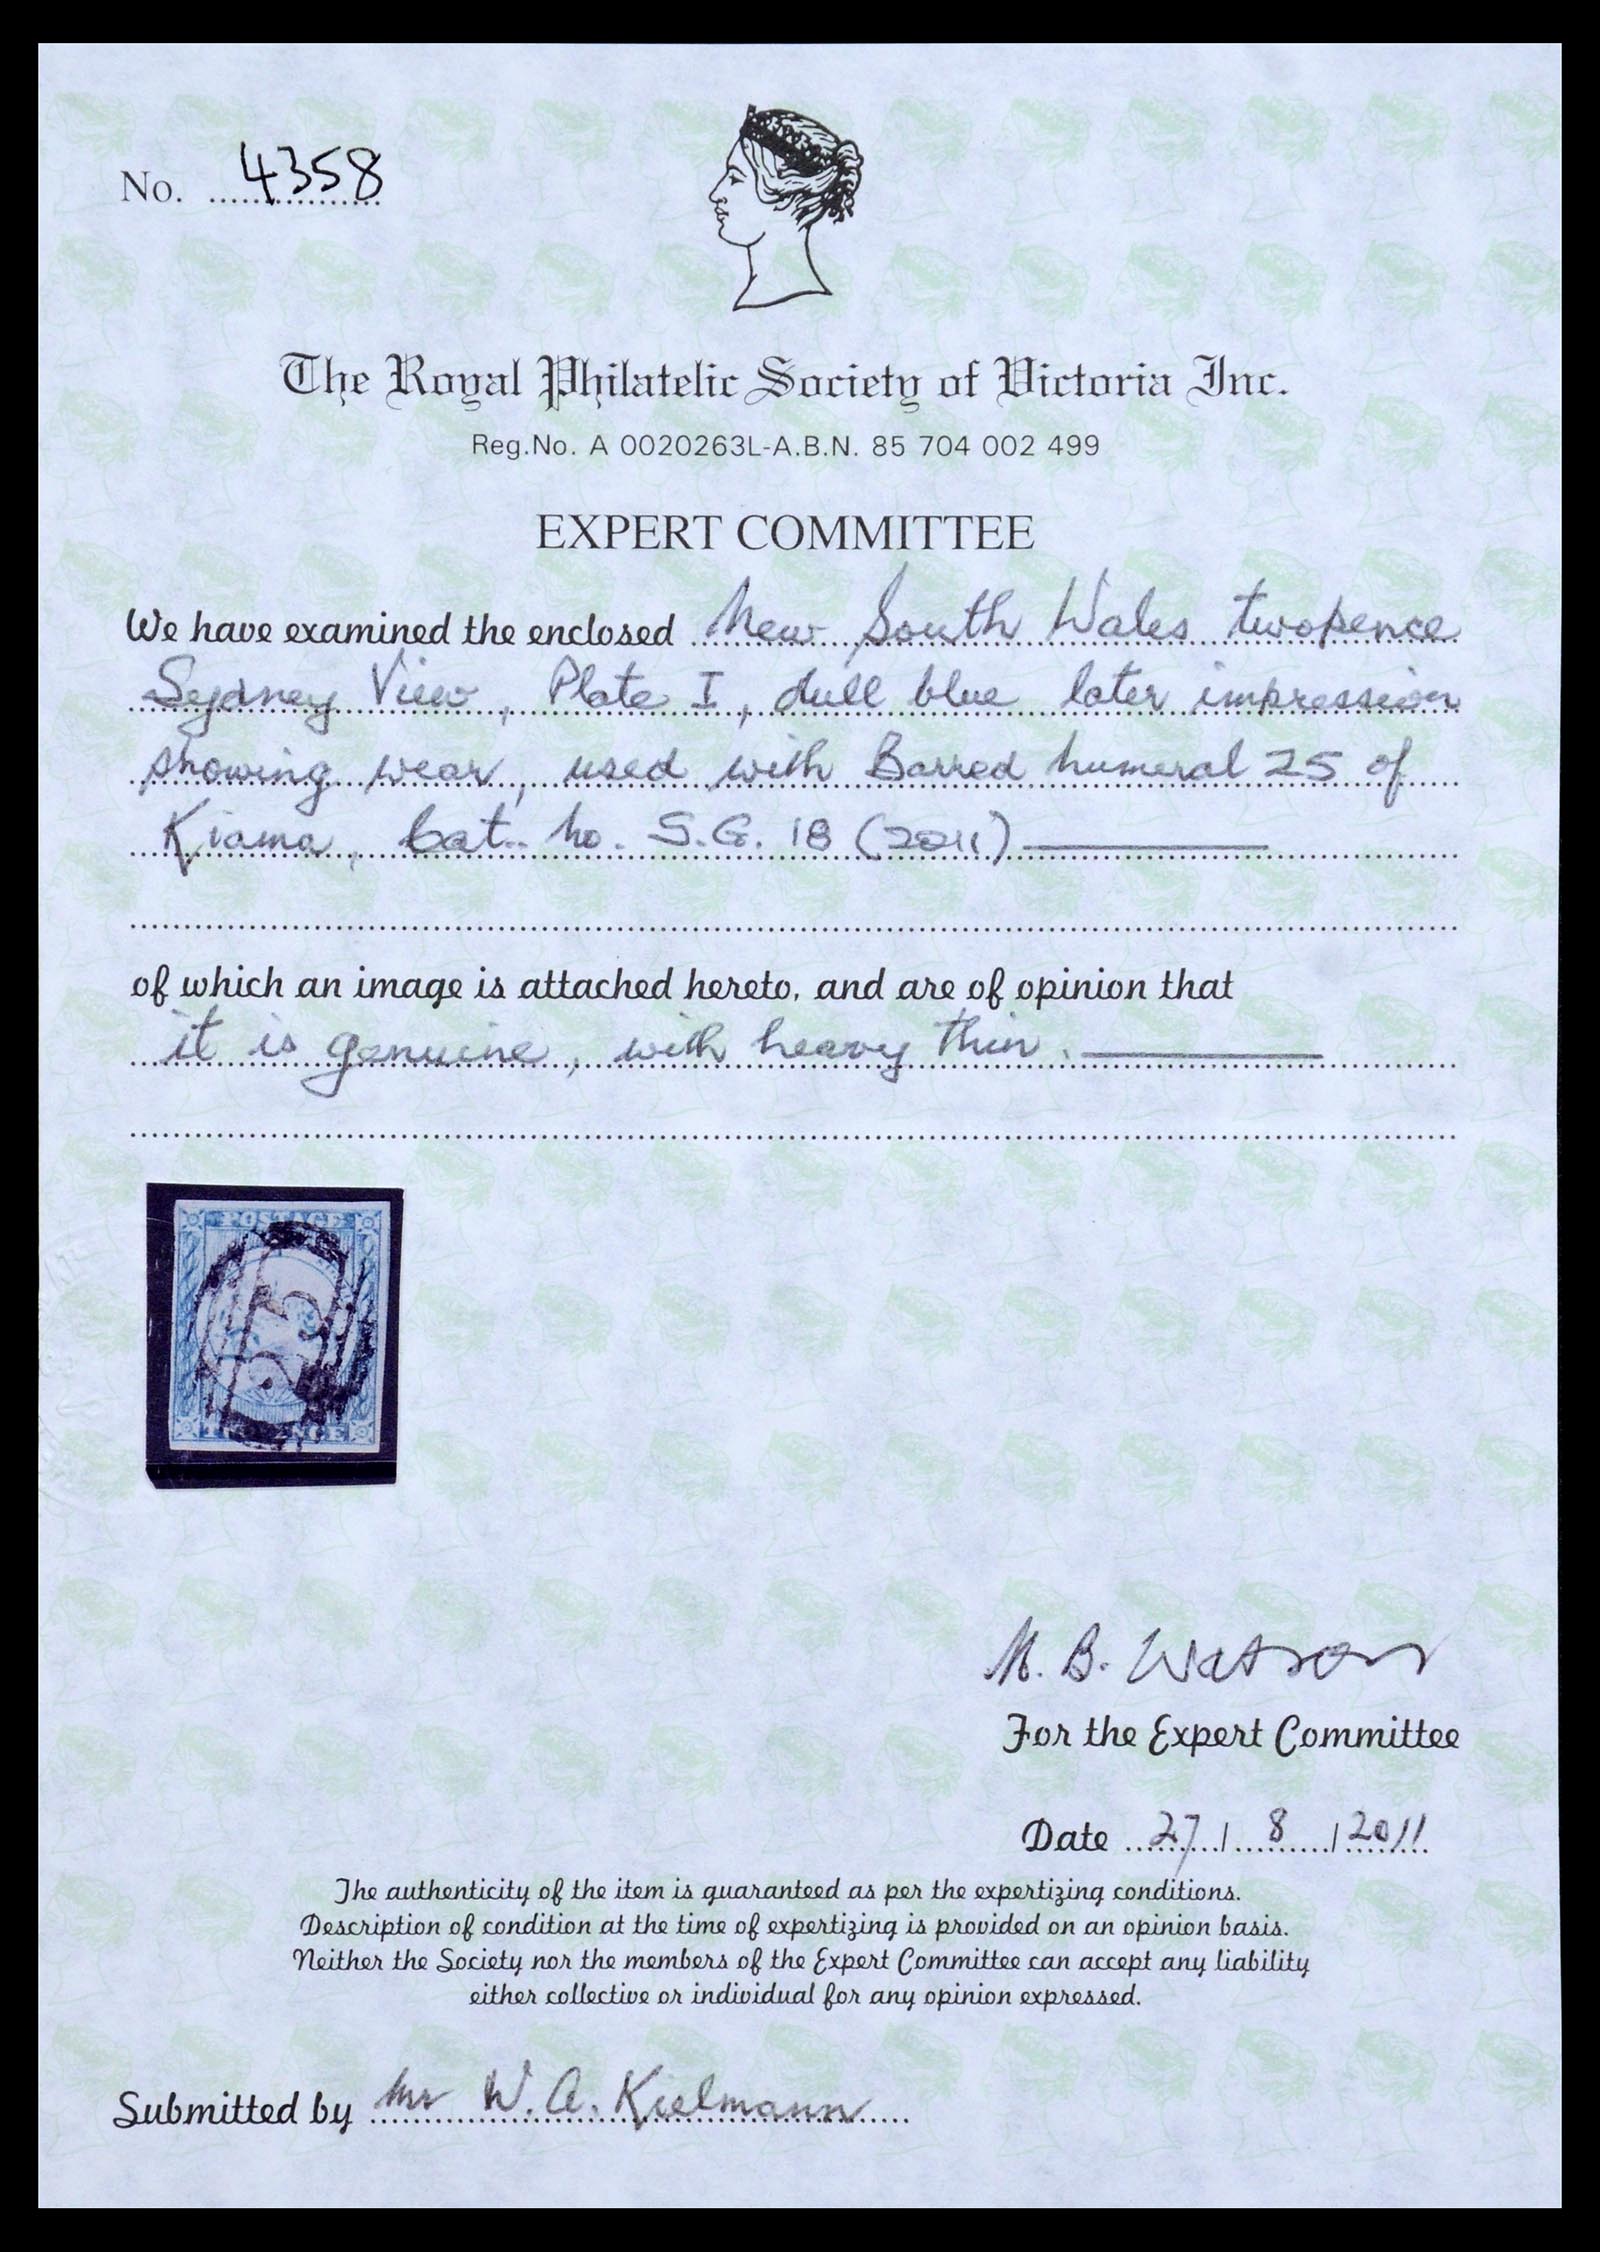 No. 4358
The Royal Philatelic Society of Victoria Inc.
Reg.No. A 0020263L-A.B.N. 85 704 002 499
EXPERT COMMITTEE
We have examined the enclosed New South Wales twopence
Sydney View, Plate I, dull blue later impression
showing wear, used with Barred numeral 25 of
Kiama, Cat. No. S.G. 18 (2011)
of which an image is attached hereto, and are of opinion that
it is genuine, with heavy thin.
POSTAGE
M. B. Watson
For the Expert Committee
Date 27 / 8 / 2011
The authenticity of the item is guaranteed as per the expertizing conditions.
Description of condition at the time of expertizing is provided on an opinion basis.
Neither the Society nor the members of the Expert Committee can accept any liability
either collective or individual for any opinion expressed.
Submitted by Mr W. A. Kielmann